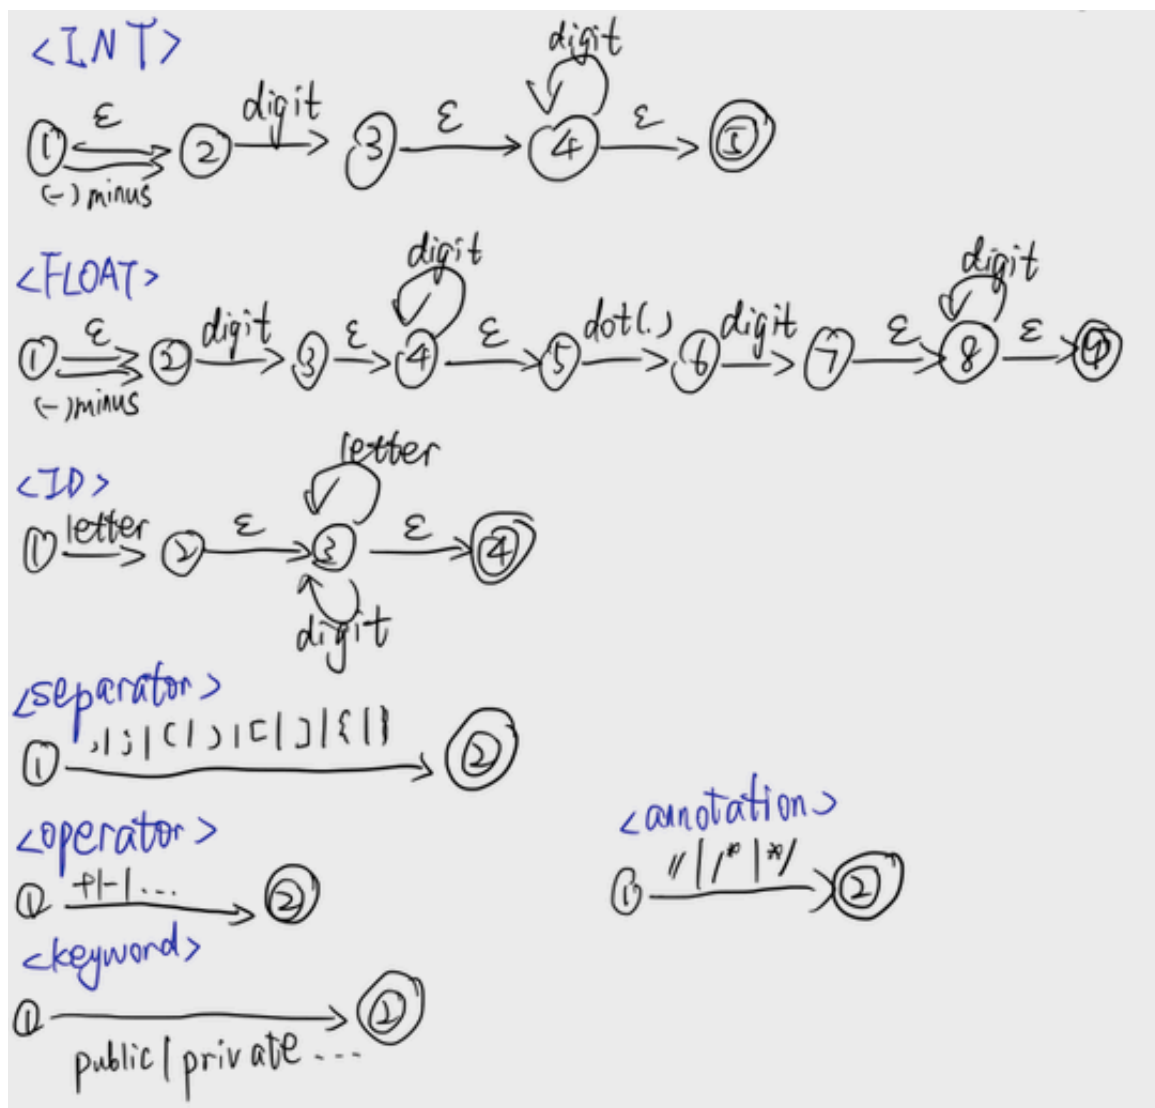 <INT>
digit
ε digit ε ε
1 2 3 4 5
(-) minus
<FLOAT>
digit digit
ε digit ε ε dot(.) digit ε ε
1 2 3 4 5 6 7 8 9
(-) minus
<ID>
letter
letter ε ε
1 2 3 4
digit
<separator>
,|;|(|)|[|]|{|}
1 2
<operator>
+|-|...
1 2
<annotation>
//|/*|*/
1 2
<keyword>
1 2
public|private...